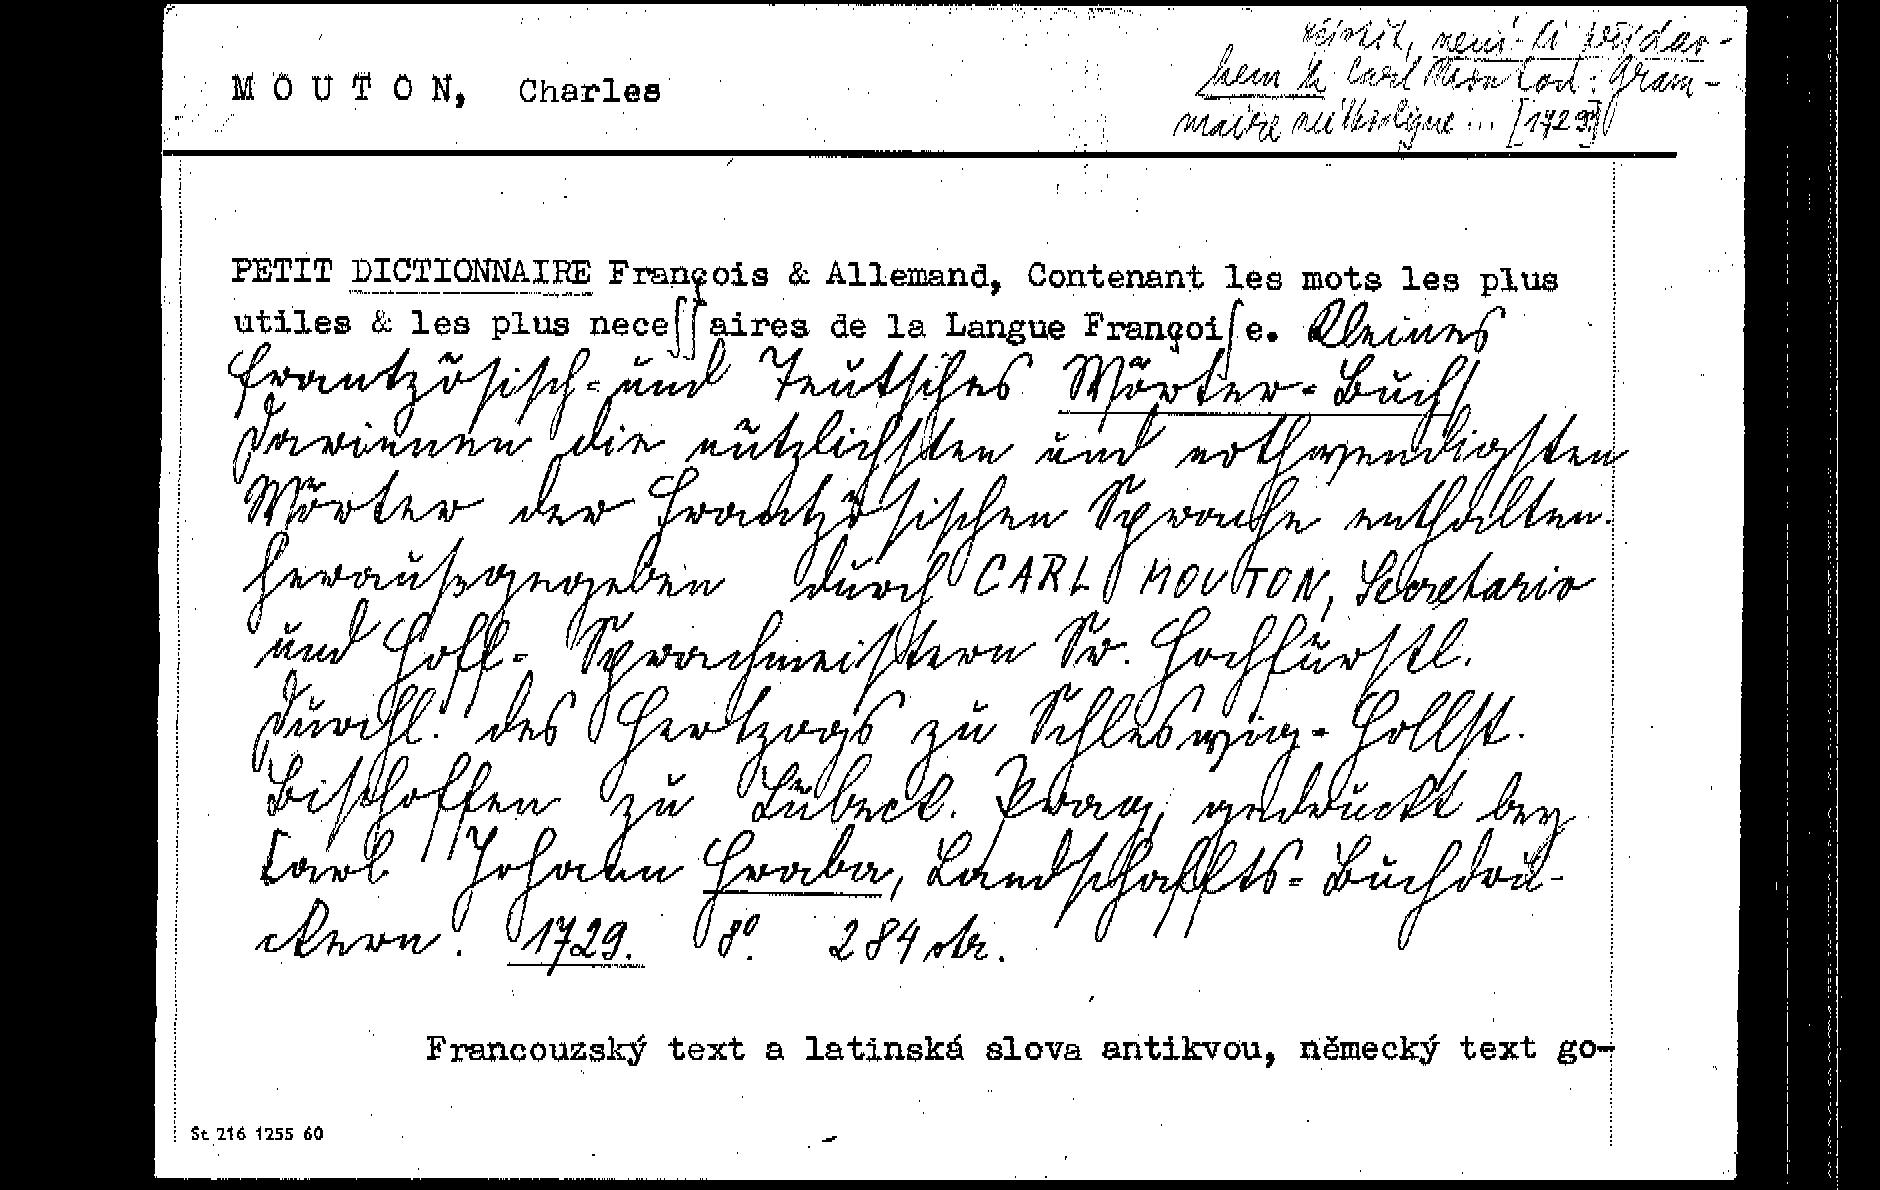 zjistit, není-li přídav-
kem k Carl Mouton: Gram-
maire méthodique ... [1729]
M O U T O N, Charles
PETIT DICTIONNAIRE François & Allemand, Contenant les mots les plus
utiles & les plus neceſſaires de la Langue Françoiſe. Kleines
Frantzösisch- und Teutsches Wörter-Buch/
Darinnen die nützlichſten und nothwendigſten
Wörter der Frantzöſiſchen Sprache enthalten.
Herauſzgegeben durch CARL MOUTON, Secretario
und Hoff- Sprachmeiſtern Sr. Hochfürſtl.
Durchl. des Hertzogs zu Schleswig-Hollſt.
Biſchoffen zu Lübeck. Prag, gedruckt bey
Carl Johann Hraba, Landſchaffts-Buchdru-
ckern. 1729. 8°. 284 str.
Francouzský text a latinská slova antikvou, německý text go-
St 216 1255 60